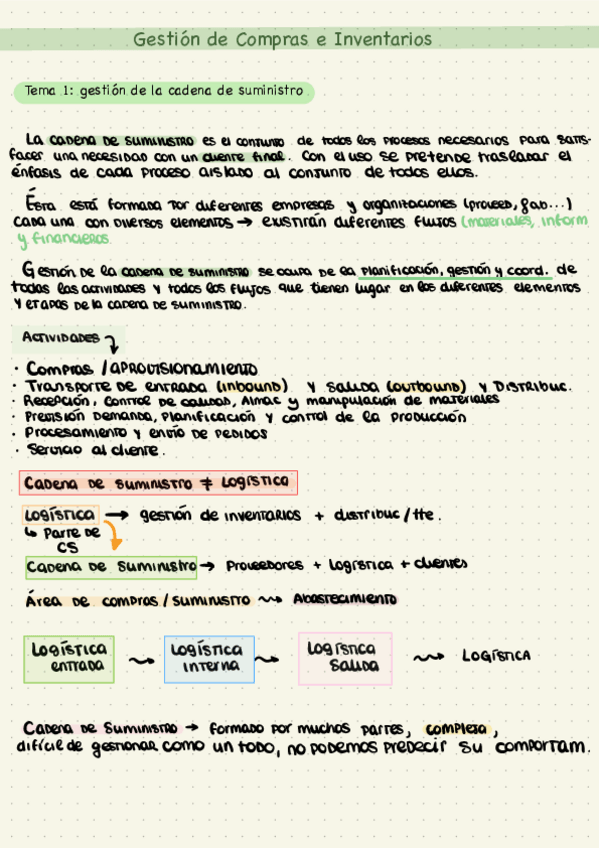 Gestión de Compras e Inventarios
Tema 1: gestión de la cadena de suministro
La cadena de suministro es el conjunto de todos los procesos necesarios para satis-
facer una necesidad con un cliente final. Con el uso se pretende trasladar el
énfasis de cada proceso aislado al conjunto de todos ellos.
Ésta está formada por diferentes empresas y organitaciones (proveed, fab...)
cada una con diversos elementos → existirán diferentes flujos (materiales, inform
y financieros.
Gestión de la cadena de suministro se ocupa de la planificación, gestión y coord. de
todas las actividades y todos los flujos que tienen lugar en los diferentes elementos
y etapas de la cadena de suministro.
Actividades
· Compras / aprovisionamiento
· Transporte de entrada (inbound) y salida (outbound) y distribuc.
· Recepción, control de calidad, almac y manipulación de materiales
· Previsión demanda, planificación y control de la producción
· Procesamiento y envío de pedidos
· Servicio al cliente.
Cadena de suministro ≠ logística
Logística → gestión de inventarios + distribuc/tte.
↳ Parte de
CS
Cadena de suministro → Proveedores + logística + clientes
Área de compras / suministro ⇝ Abastecimiento
Logística entrada ⇝ Logística interna ⇝ Logística salida ⇝ LOGÍSTICA
Cadena de Suministro → formado por muchos partes, compleja,
difícil de gestionar como un todo, no podemos predecir su comportam.